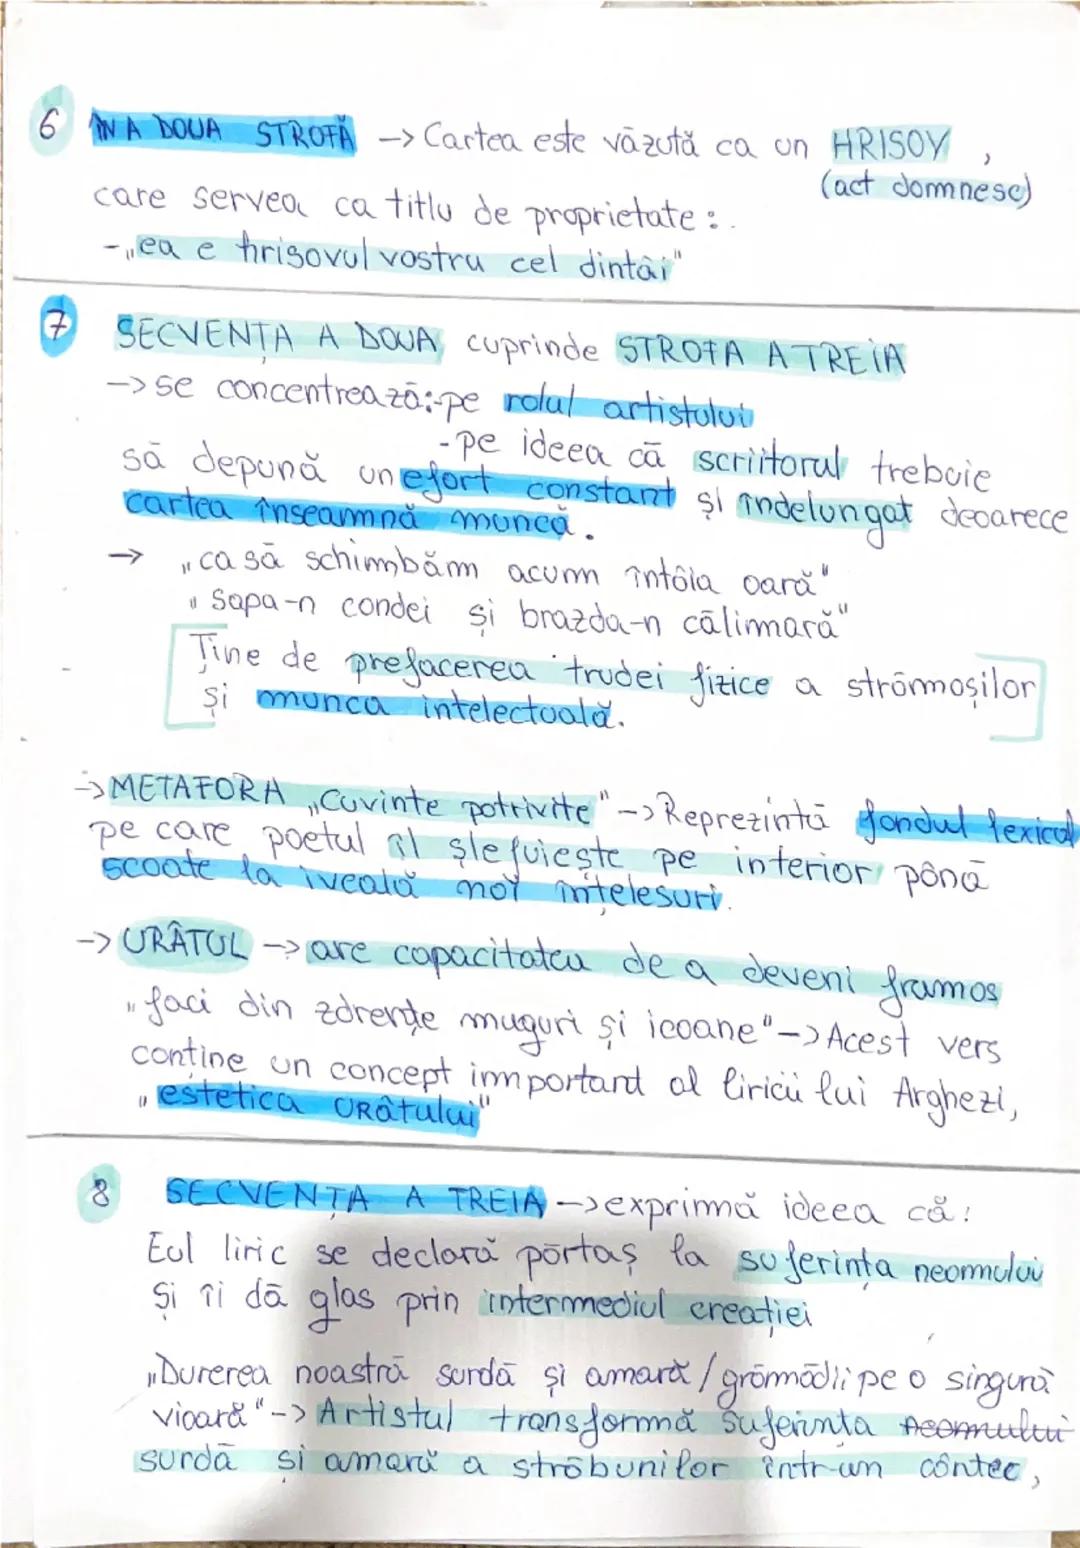 6 ÎN A DOUA STROFĂ -> Cartea este văzută ca un HRISOV,
(act domnesc)
care servea ca titlu de proprietate:
- „ea e hrisovul vostru cel dintâi"
7 SECVENȚA A DOUA cuprinde STROFA A TREIA
-> se concentrează:-pe rolul artistului
-pe ideea că scriitorul trebuie
să depună un efort constant și îndelungat deoarece
cartea înseamnă muncă.
-> „ca să schimbăm acum întâia oară"
„Sapa-n condei și brazda-n călimară"
Ține de prefacerea trudei fizice a strămoșilor
și munca intelectuală.
-> METAFORA „Cuvinte potrivite" -> Reprezintă fondul lexical
pe care poetul îl șlefuiește pe interior până
scoate la iveală noi înțelesuri.
-> URÂTUL -> are capacitatea de a deveni frumos
„faci din zdrențe muguri și icoane" -> Acest vers
conține un concept important al liricii lui Arghezi,
„estetica urâtului"
8 SECVENȚA A TREIA -> exprimă ideea că:
Eul liric se declară părtaș la suferința neamului
Și îi dă glas prin intermediul creației
„Durerea noastră surdă și amară / grămădii pe o singură
vioară" -> Artistul transformă suferința neamului
surdă și amară a străbunilor într-un cântec,